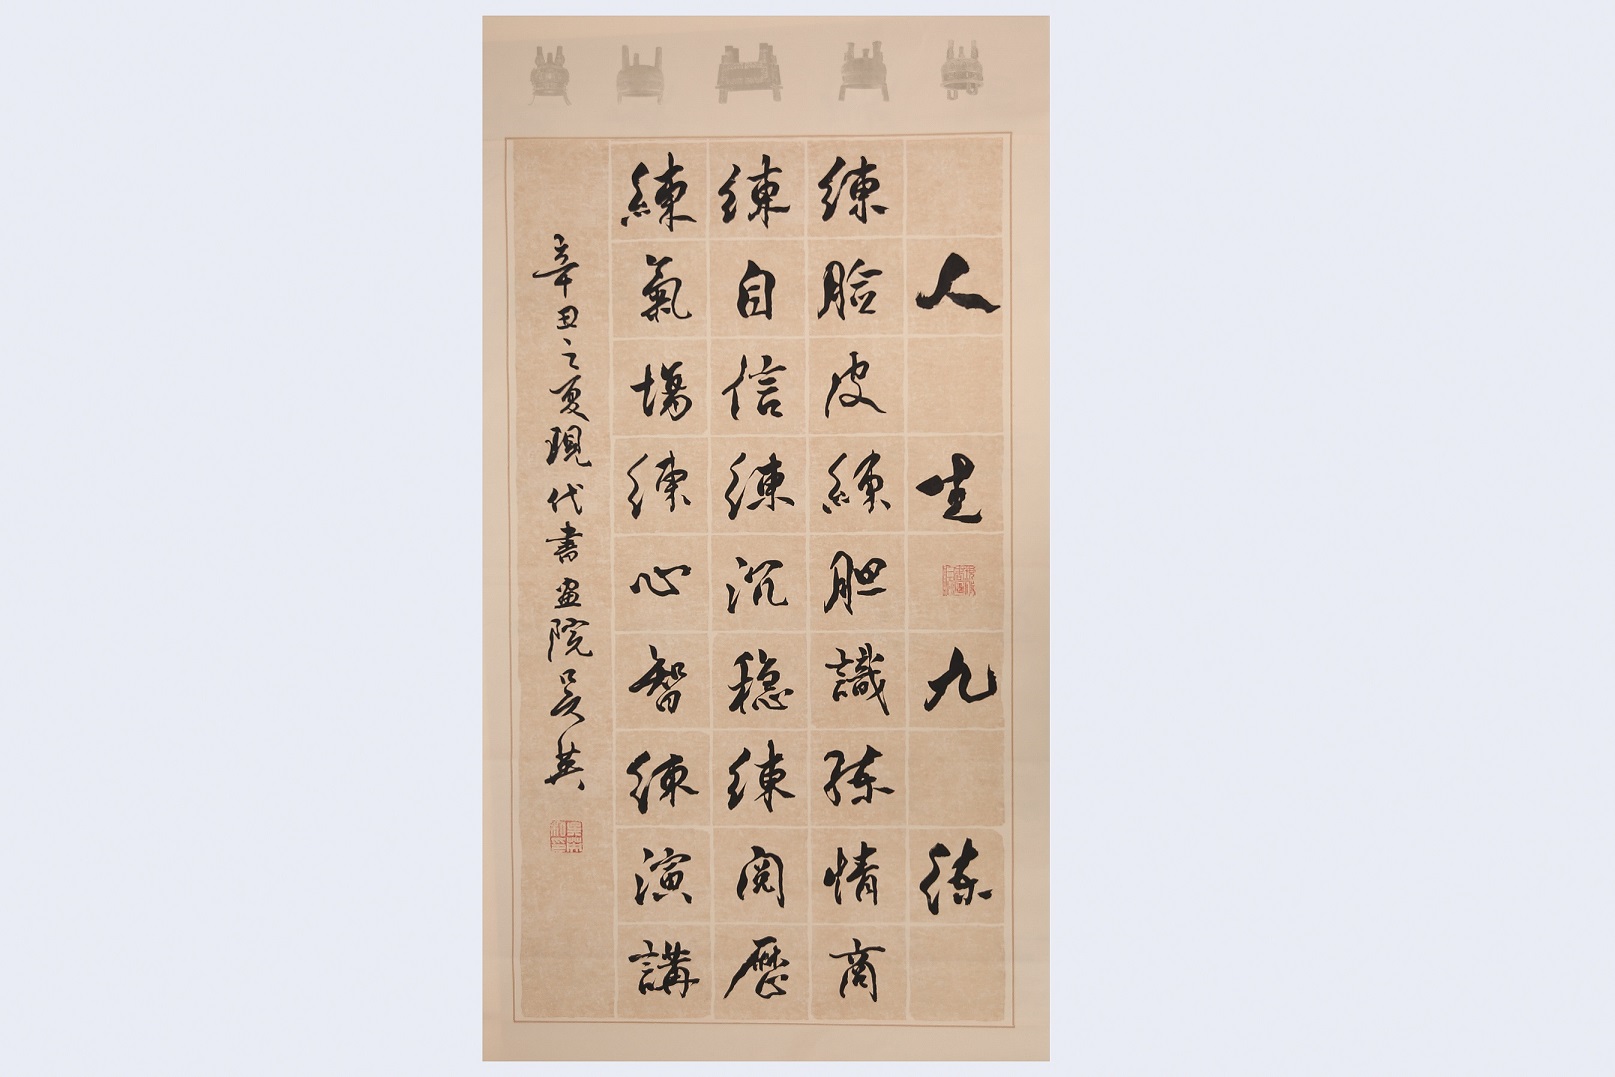 人生九练
練臉皮練胆識練情商
練自信練沉穏練阅歷
練氣場練心智練演講
辛丑之夏現代書畫院吴英